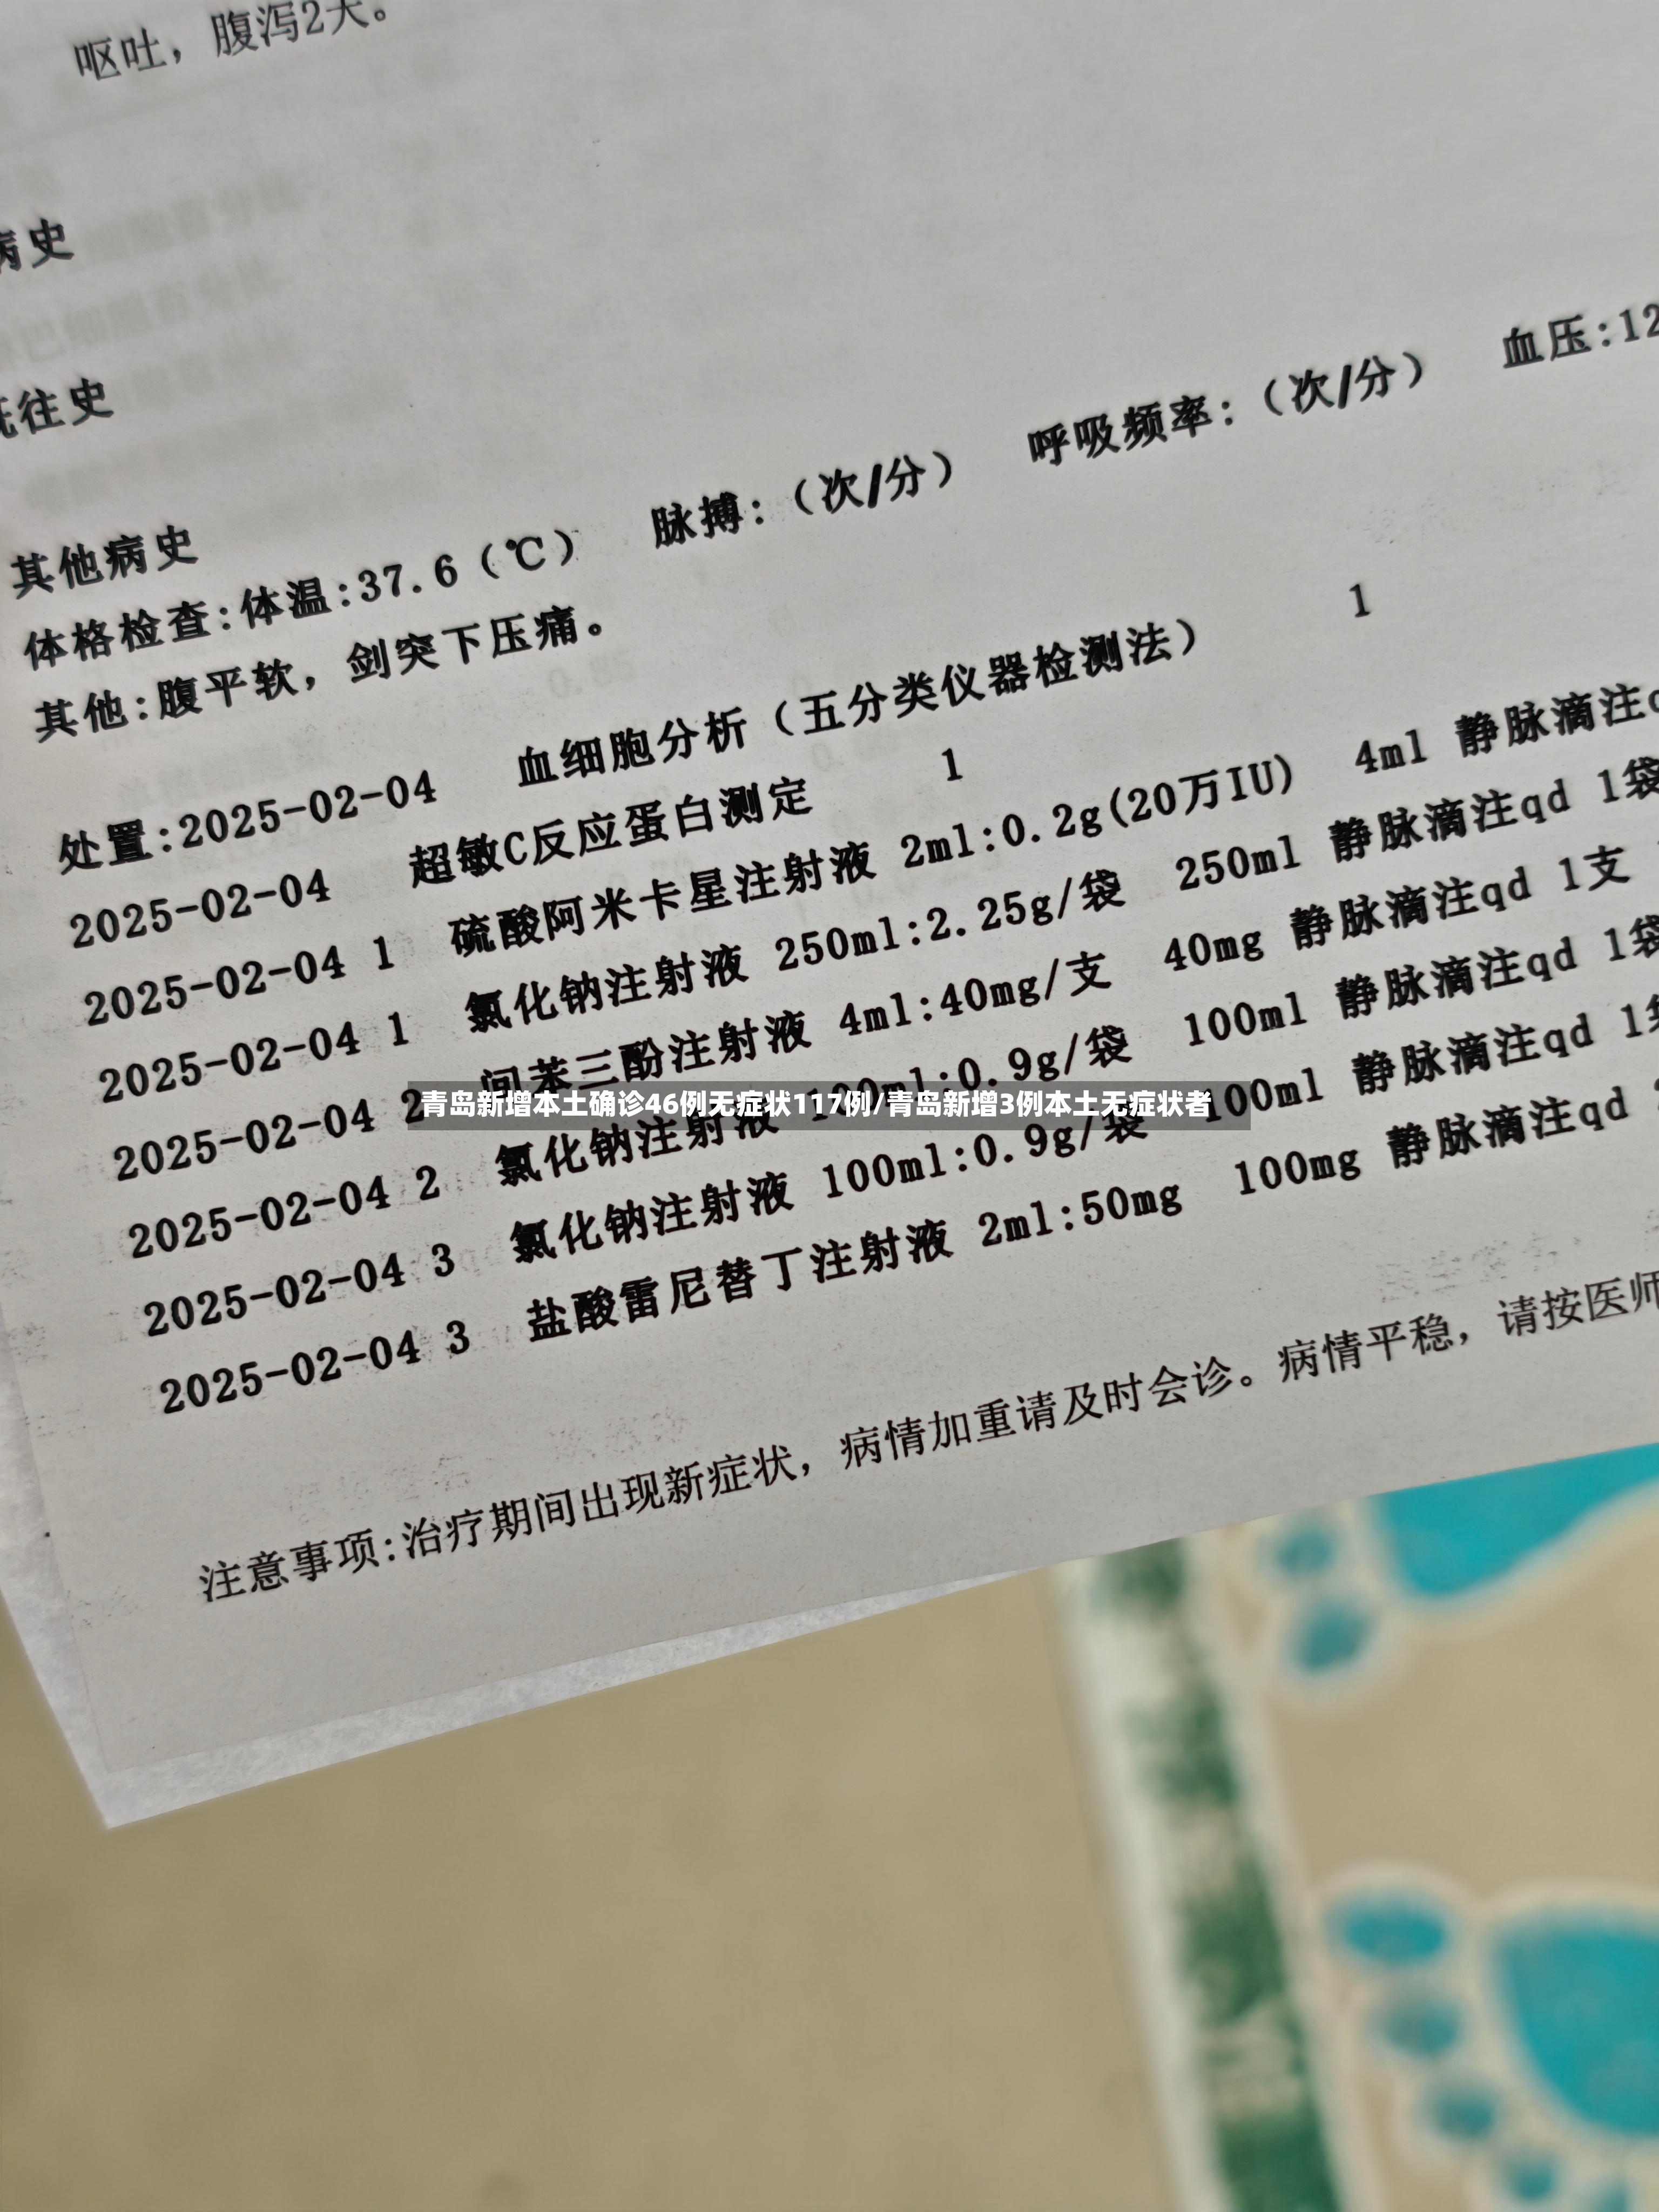 呕吐，腹泻2天。
病史
既往史
其他病史
体格检查:体温:37.6（℃） 脉搏:（次/分） 呼吸频率:（次/分） 血压:12
其他:腹平软，剑突下压痛。
处置:2025-02-04 血细胞分析（五分类仪器检测法） 1
2025-02-04 超敏C反应蛋白测定 1
2025-02-04 1 硫酸阿米卡星注射液 2ml:0.2g(20万IU) 4ml 静脉滴注
2025-02-04 1 氯化钠注射液 250ml:2.25g/袋 250ml 静脉滴注qd 1袋
2025-02-04 2 间苯三酚注射液 4ml:40mg/支 40mg 静脉滴注qd 1支
2025-02-04 2 氯化钠注射液 100ml:0.9g/袋 100ml 静脉滴注qd 1袋
2025-02-04 3 氯化钠注射液 100ml:0.9g/袋 100ml 静脉滴注qd 1袋
2025-02-04 3 盐酸雷尼替丁注射液 2ml:50mg 100mg 静脉滴注qd
注意事项:治疗期间出现新症状，病情加重请及时会诊。病情平稳，请按医师
青岛新增本土确诊46例无症状117例/青岛新增3例本土无症状者